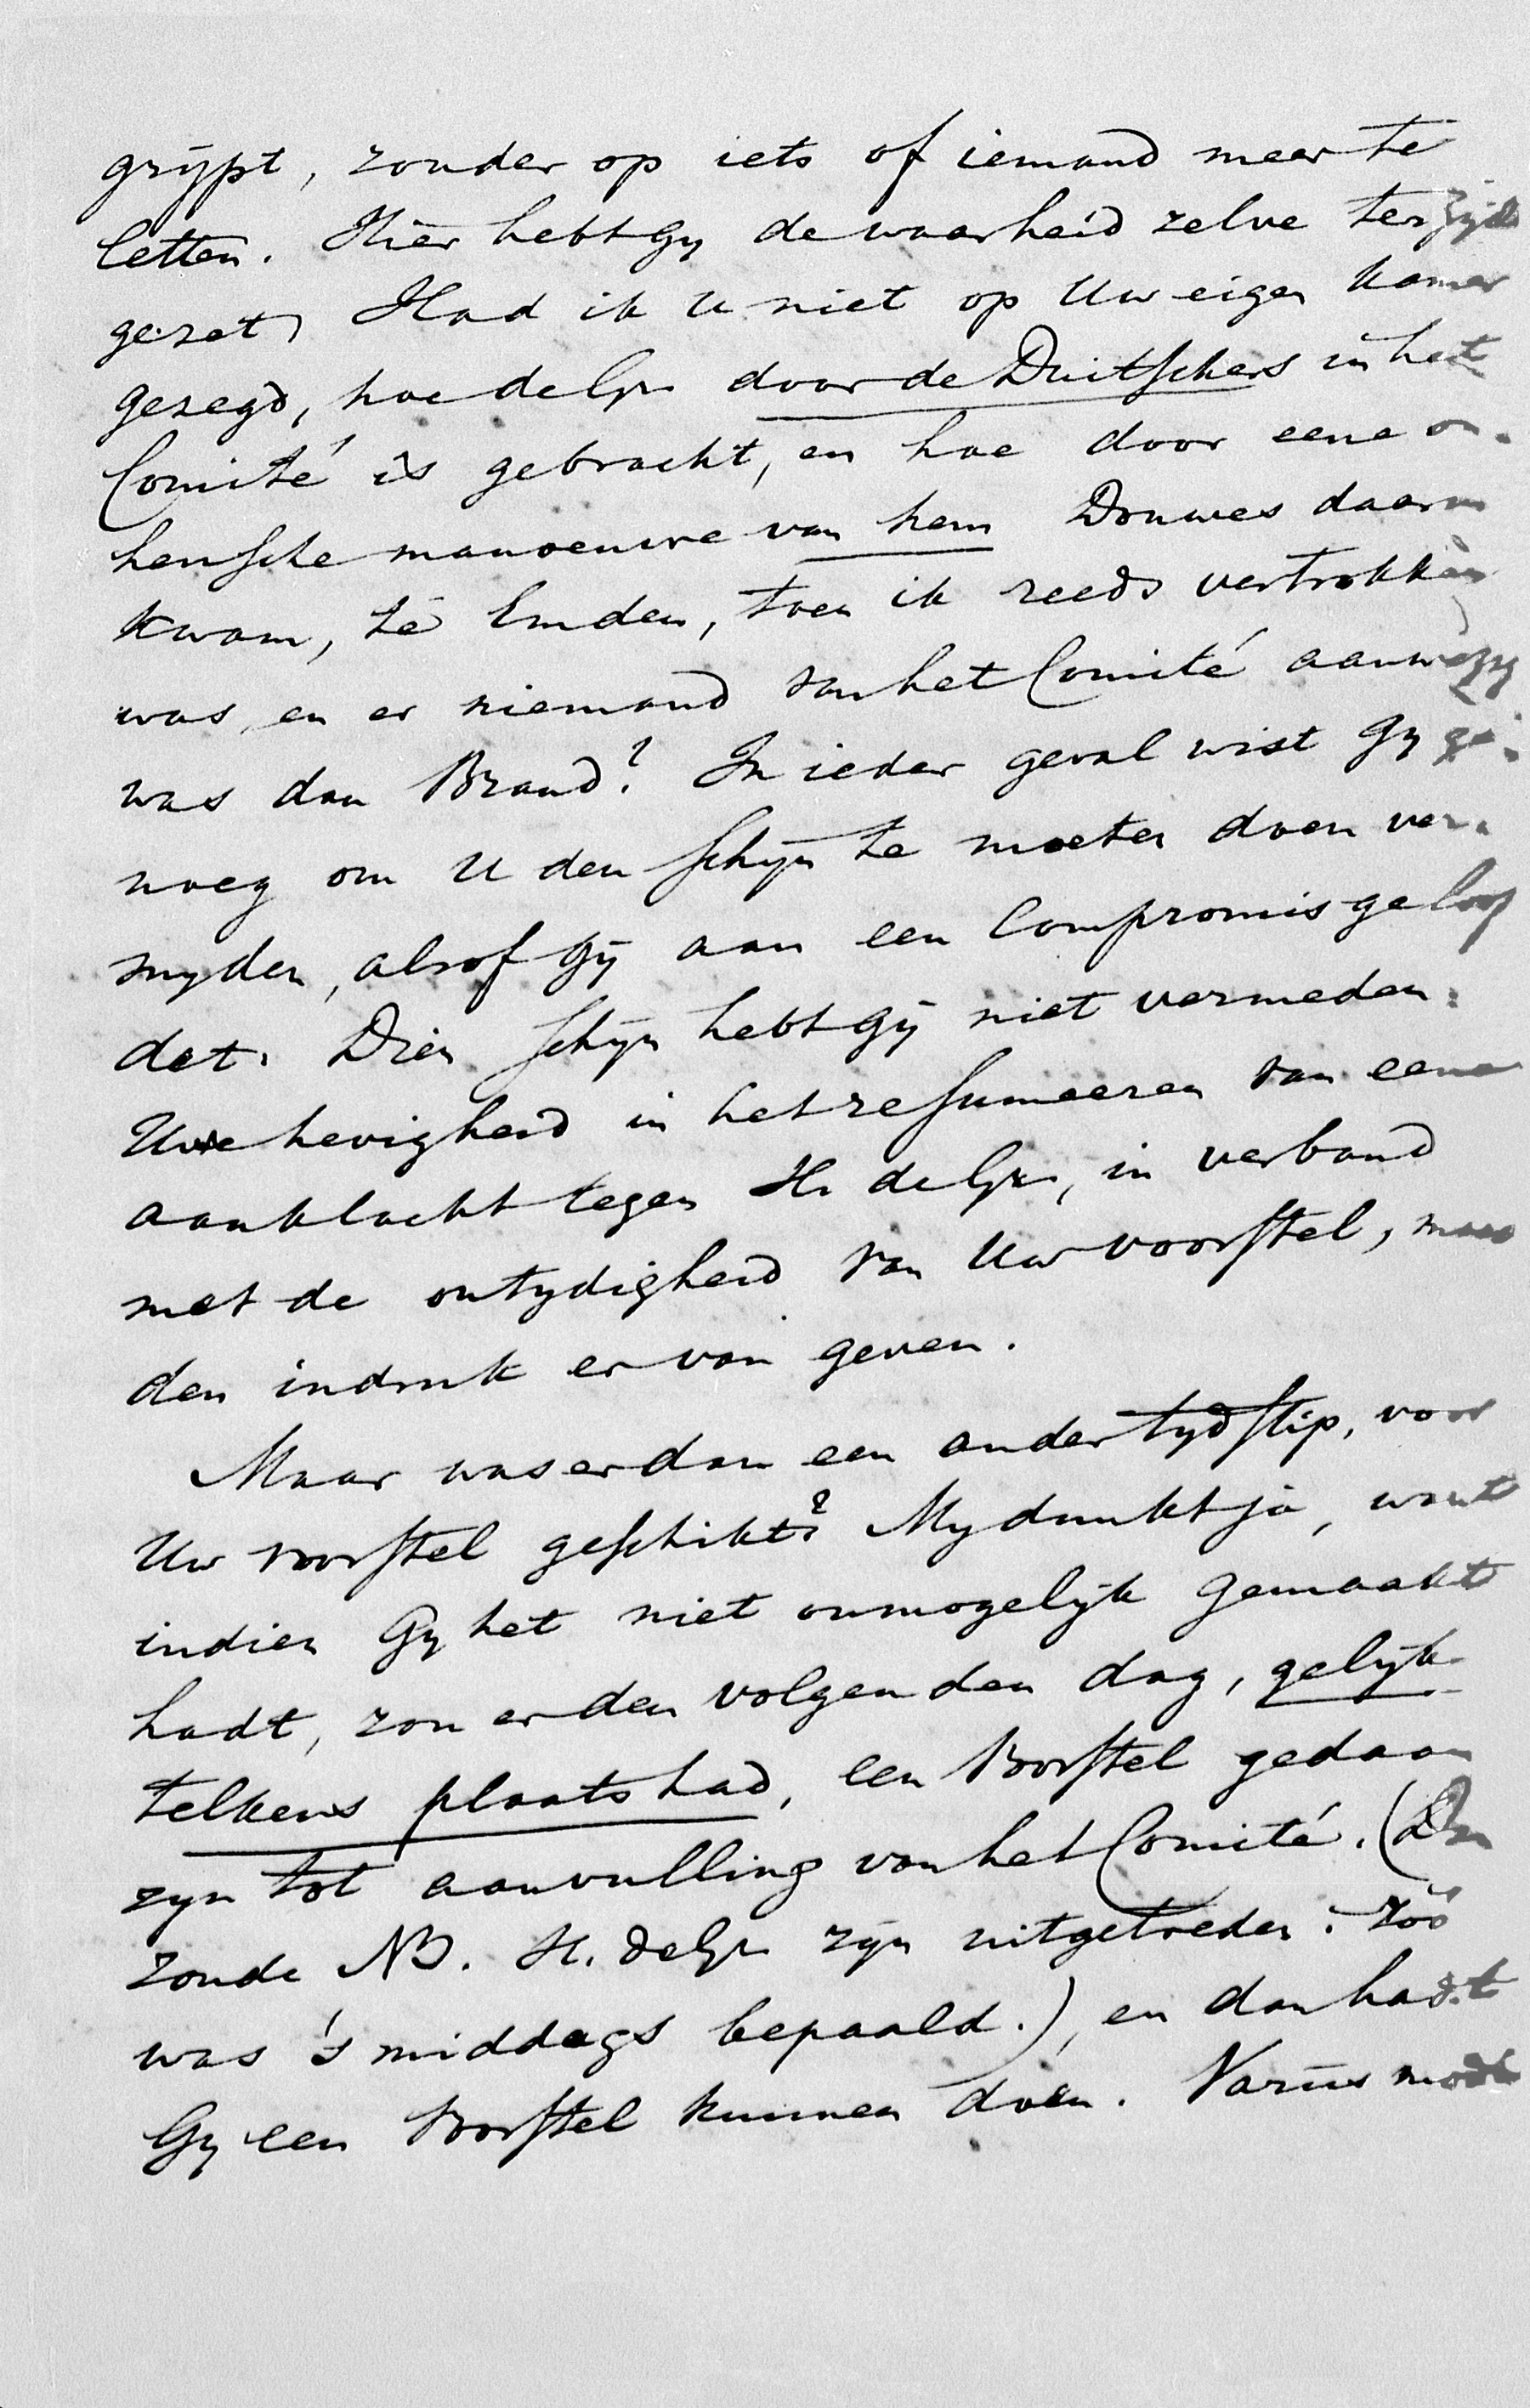 grijpt, zonder op iets of iemand meer te
letten. Hier hebt Gy de waarheid zelve terzijde
gezet. Had ik U niet op Uw eigen kamer
gezegd, hoe de Gr. door de Duitschers in het
Comité is gebracht, en hoe door eene on-
heusche manoeuvre van hem Douwes daarin
kwam, te Emden, toen ik reeds vertrokken
was, en er niemand van het Comité aanwezig
was dan Brand? In ieder geval wist Gy ge-
noeg om U den schijn te moeten doen ver-
myden, alsof Gij aan een Compromis geloof
det. Dien schijn hebt Gij niet vermeden:
Uwe hevigheid in het resumeeren van eene
aanklacht tegen H. de Gr., in verband
met de ontydigheid van Uw voorstel, moes
den indruk er van geven.
Maar was er dan een ander tydstip, voor
Uw voorstel geschikt? My dunkt ja, want
indien Gy het niet onmogelijk gemaakt
hadt, zou er den volgenden dag, gelijk
telkens plaats had, een voorstel gedaan
zyn tot aanvulling van het Comité. (Dan
zoude NB. H. de Gr. zijn uitgetreden: zóó
was 's middags bepaald.), en dan hadt
Gy een voorstel kunnen doen. Varius